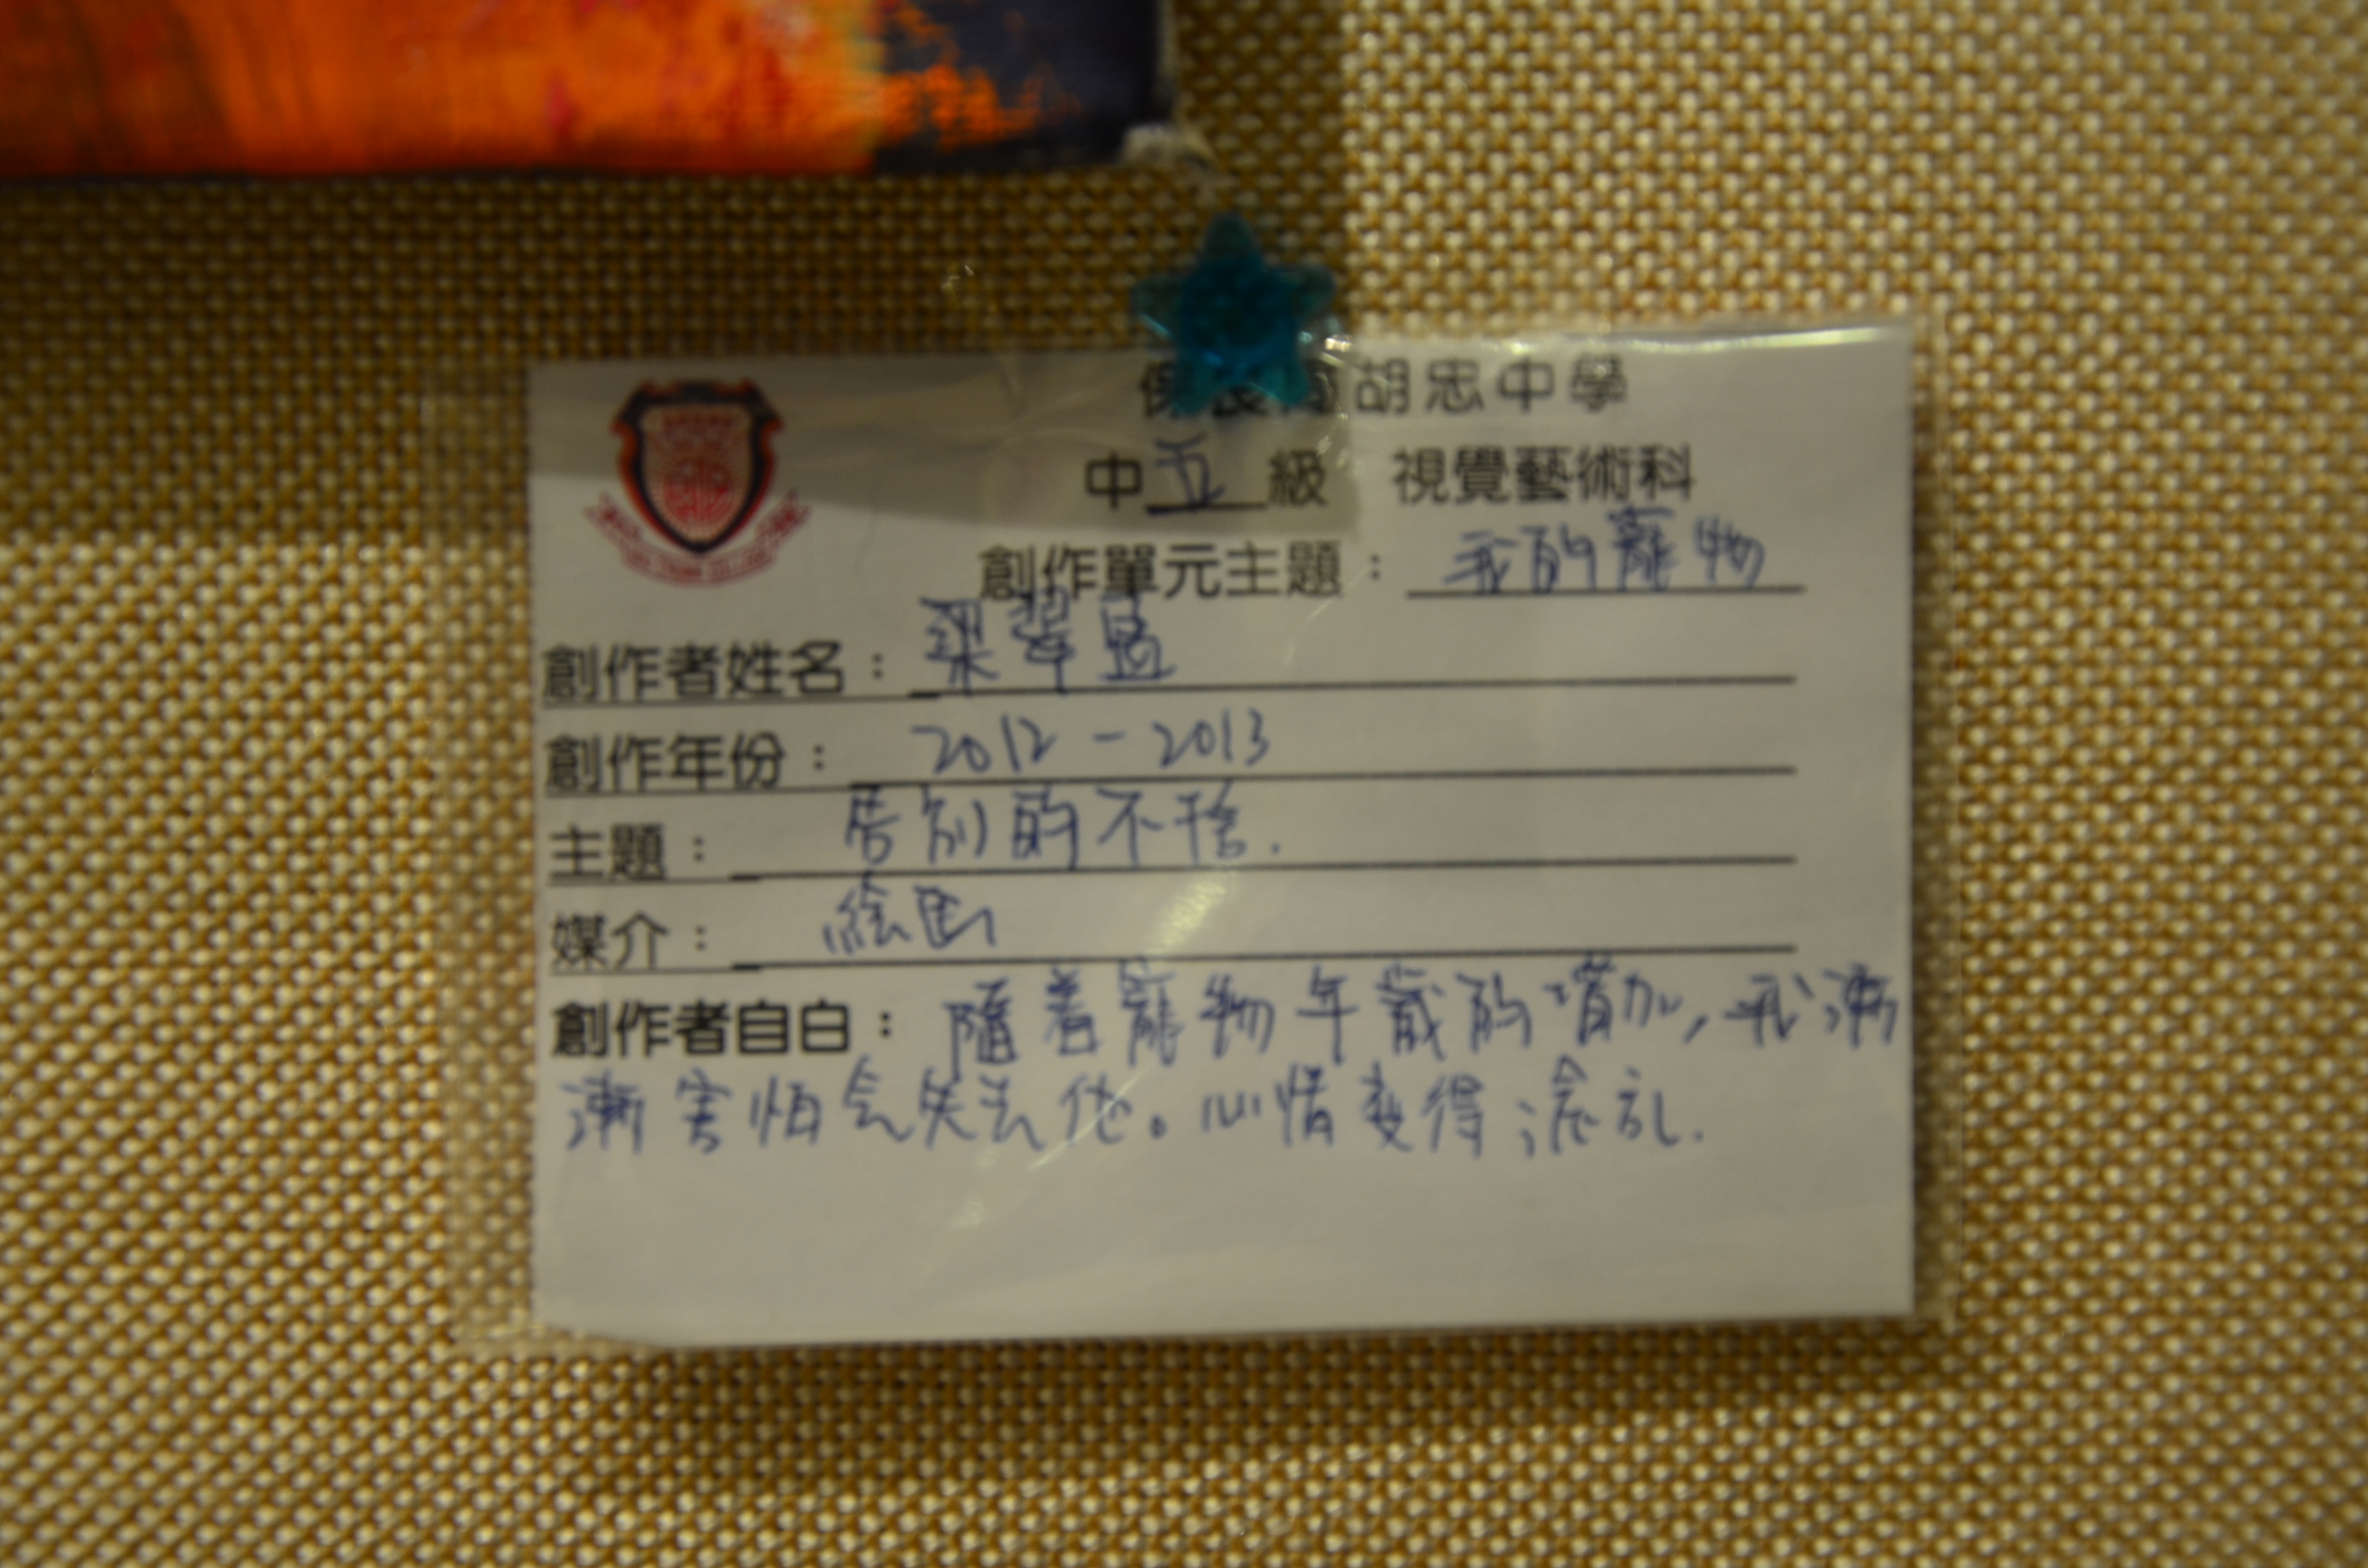 保良局胡忠中學
中五級 視覺藝術科
創作單元主題：我的寵物
創作者姓名：梁翠盈
創作年份：2012 - 2013
主題：告別的不捨.
媒介：絵画
創作者自白：隨着寵物年歲的增加,我漸
漸害怕会失去他。心情变得混乱.